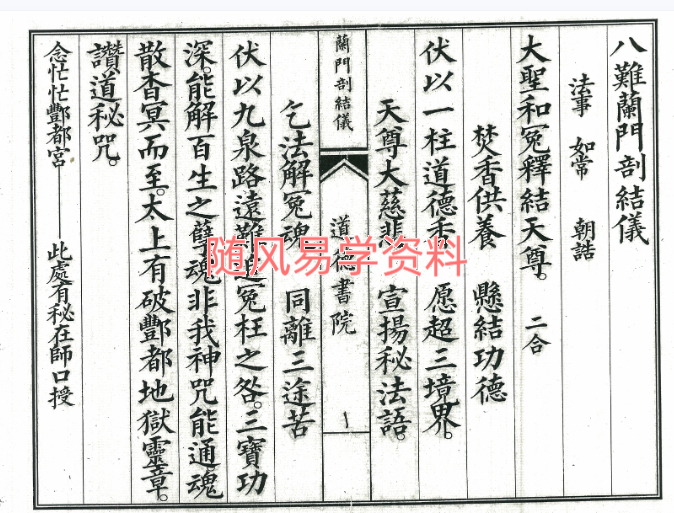 八難蘭門剖結儀
法事　如常　朝誥
大聖和冤釋結天尊。　二合
焚香供養　懸結功德
伏以一柱道德香　愿超三境界。
天尊大慈悲　宣揚秘法語。
蘭門剖結儀　道德書院　一
乞法解冤魂　同離三途苦
伏以九泉路遠難追冤枉之咎。三寶功
深。能解百生之孽魂非我神咒能通魂
散杳冥而至。太上有破酆都地獄靈章。
讚道秘咒。
念忙忙酆都宮——此處有秘在師口授
随风易学资料